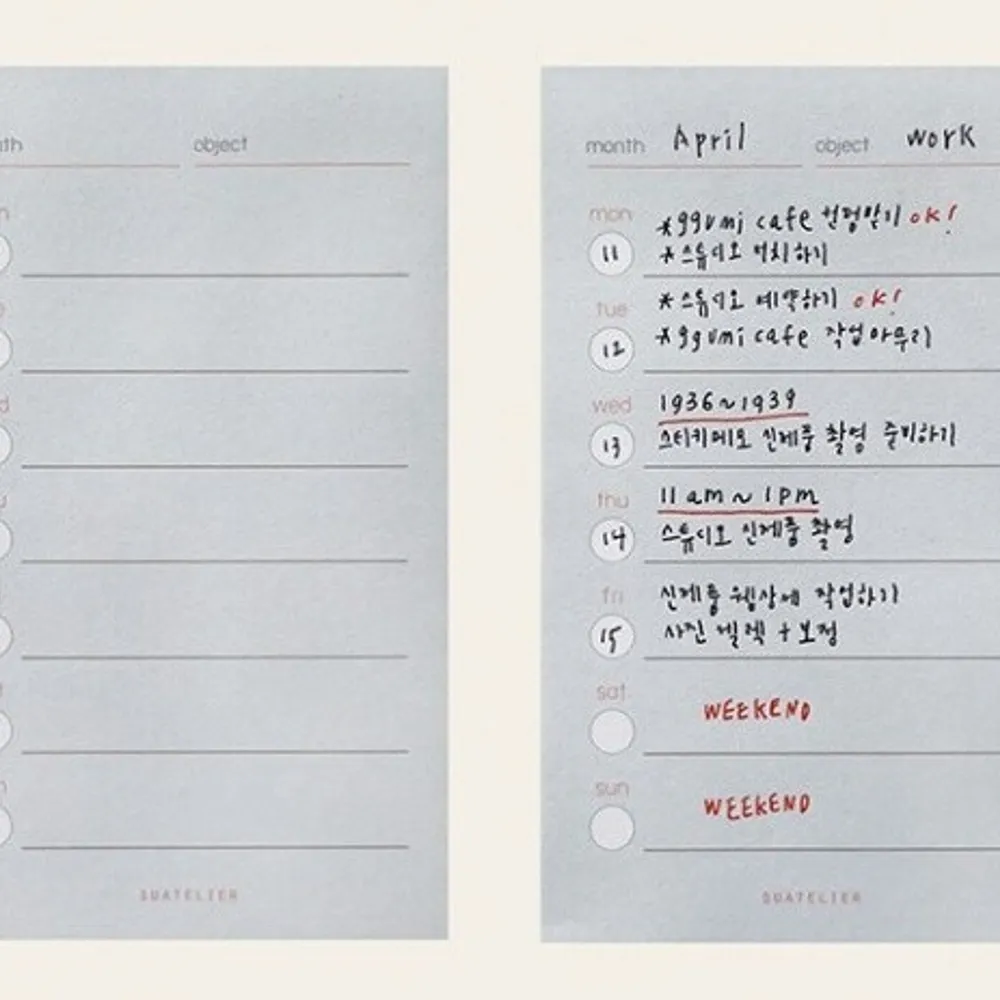 nth object
n
e
d
u
t
n
SUATELIER
month April object work
mon *ggumi cafe 컨펌받기 OK!
11 *스튜디오 서치하기
tue *스튜디오 예약하기 OK!
12 *ggumi cafe 작업마무리
wed 1936~1939
13 스티키메모 신제품 촬영 준비하기
thu 11am~1pm
14 스튜디오 신제품 촬영
fri 신제품 웹상세 작업하기
15 사진 셀렉 + 보정
sat WEEKEND
sun WEEKEND
SUATELIER